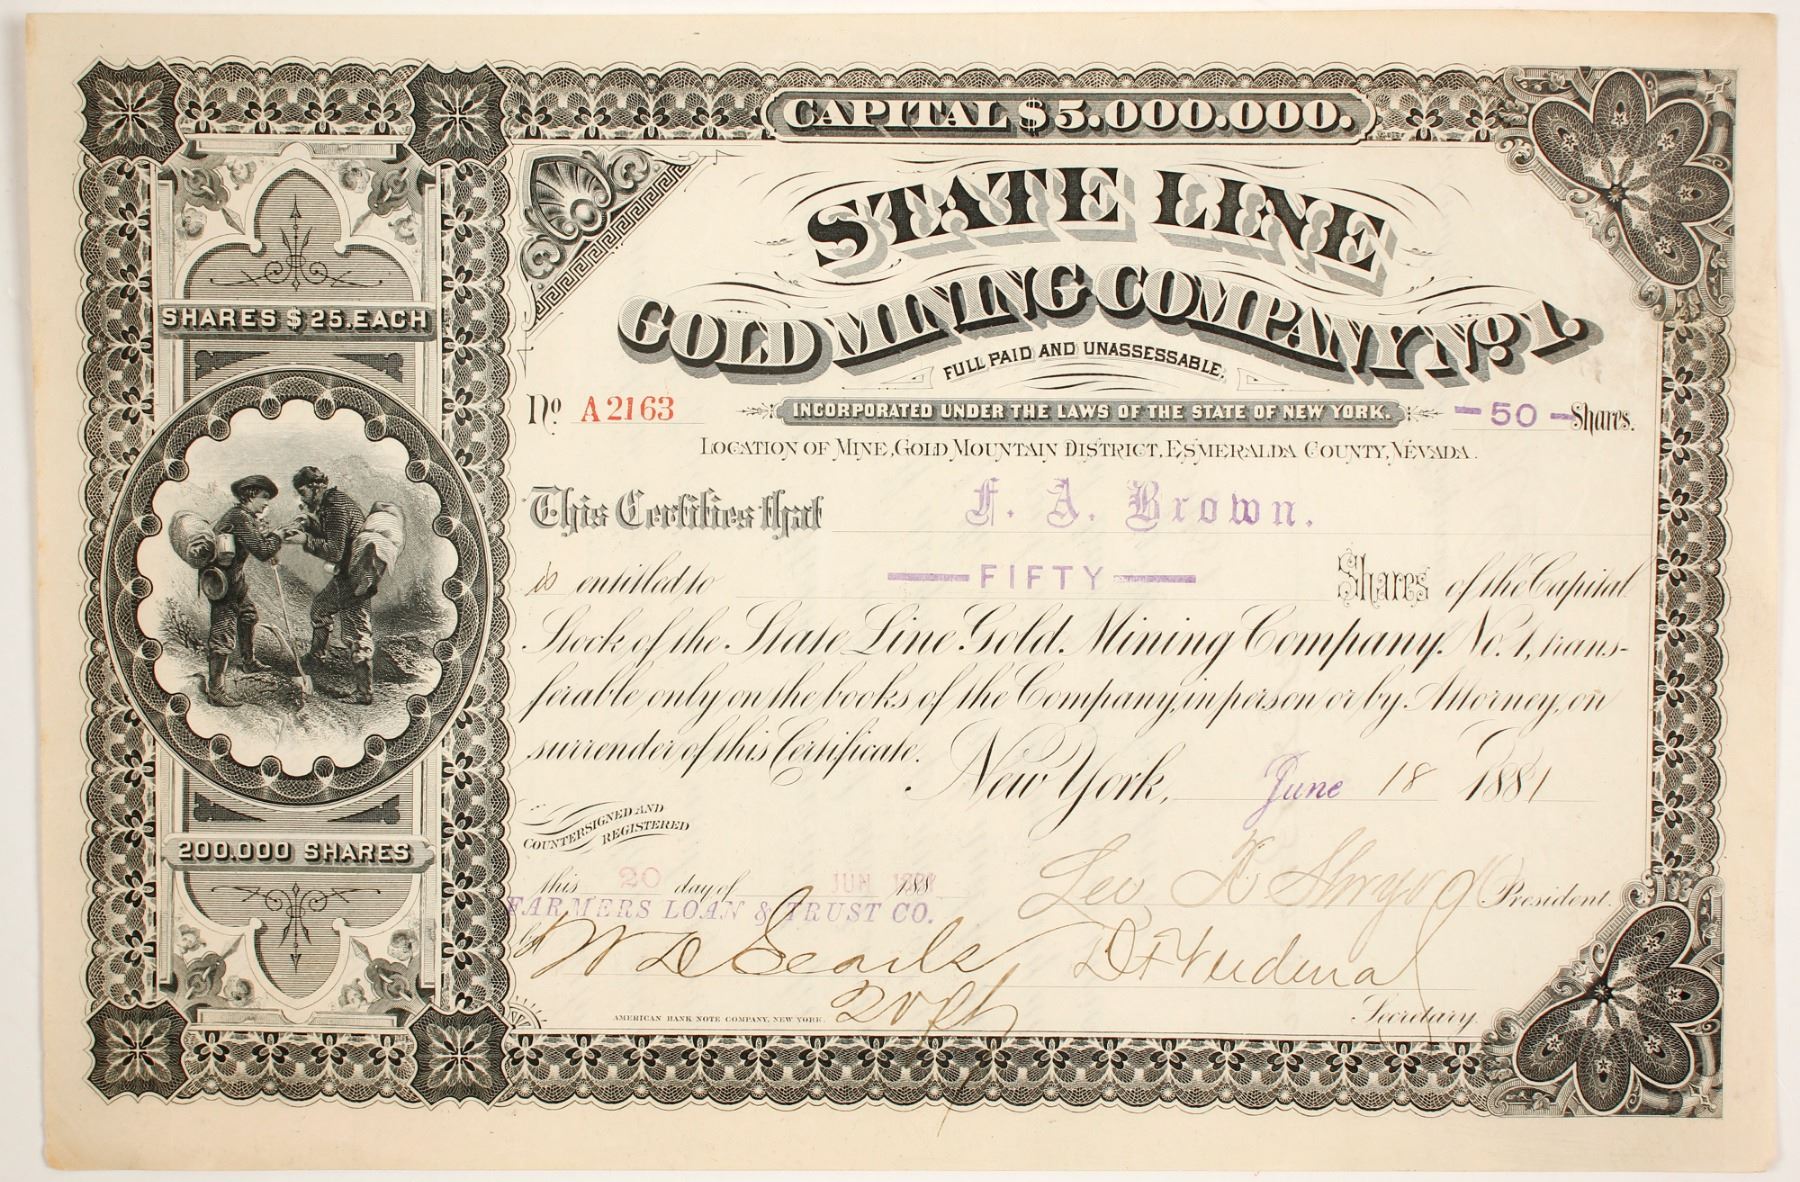 CAPITAL $5.000.000.
STATE LINE
GOLD MINING COMPANY No. 1.
FULL PAID AND UNASSESSABLE.
SHARES $25.EACH
No A2163
INCORPORATED UNDER THE LAWS OF THE STATE OF NEW YORK.
—50— Shares.
LOCATION OF MINE, GOLD MOUNTAIN DISTRICT, ESMERALDA COUNTY, NEVADA.
This Certifies that F. A. Brown.
is entitled to —FIFTY— Shares of the Capital
Stock of the State Line Gold Mining Company No. 1, trans-
ferable only on the books of the Company, in person or by Attorney, on
surrender of this Certificate. New York, June 18 1881
COUNTERSIGNED AND
REGISTERED
200.000 SHARES
this 20 day of JUN 188
FARMERS LOAN & TRUST CO.
by W D Searls
Leo President.
D F
Secretary.
AMERICAN BANK NOTE COMPANY, NEW YORK.